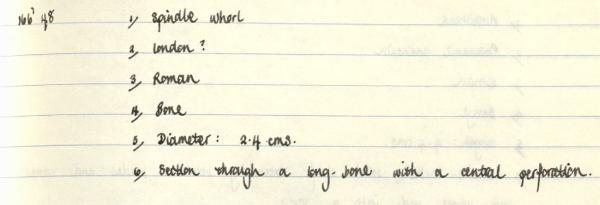 1, Spindle whorl
2, London ?
3, Roman
4, Bone
5, Diameter: 2.4 cms.
6, Section through a long-bone with a central perforation.